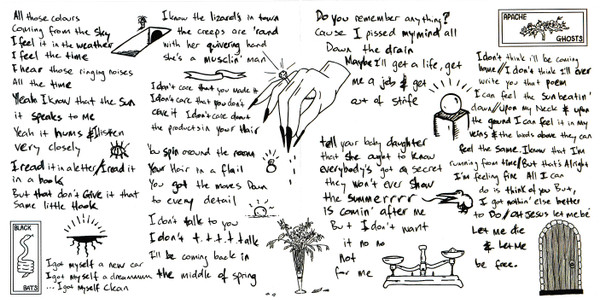 All those colours
Coming from the sky
I feel it in the weather
I feel the time
I hear those ringing noises
All the time
Yeah I know that the sun
it speaks to me
Yeah it hums & I listen
very closely
I read it in a letter/I read it
in a book
But that don't give it that
same little Hook
BLACK
BATS
I got myself a new car
I got myself a
... I got myself Clean
I know the lizards in town
the creeps are 'round
with her quivering hand
she's a musclin' man
I don't care that you made it
I don't care that you don't
I don't care about
the products in your Hair
You spin around the room
Your Hair in a flail
You got the moves Down
to every detail
I don't talk to you
I don't t.t.t.t.talk
I'll be coming back in
the middle of spring
Do you remember anything?
Cause I pissed my mind all
Down the drain
Maybe I'll get a life, get
me a job & get
out of
tell your baby daughter
that she ought to know
everybody's got a secret
they won't ever show
the summerrrr
is comin' after me
But I don't want
it no no
not
for me
APACHE
GHOSTS
I don't think i'll be coming
home//I don't think I'll ever
write you that poem
I can feel the sun beatin'
down//upon my Neck & upon
the ground I can feel it in my
veins & the birds above they can
feel the same. I know that I'm
running from time/But that's Alright
I'm feeling fine All I can
do is think of you But,
I got nothin' else better
to Do/oh Jesus let me be
Let me die
& let me
be free.